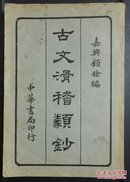 嘉興顧餘編
古文滑稽類鈔
中華書局印行